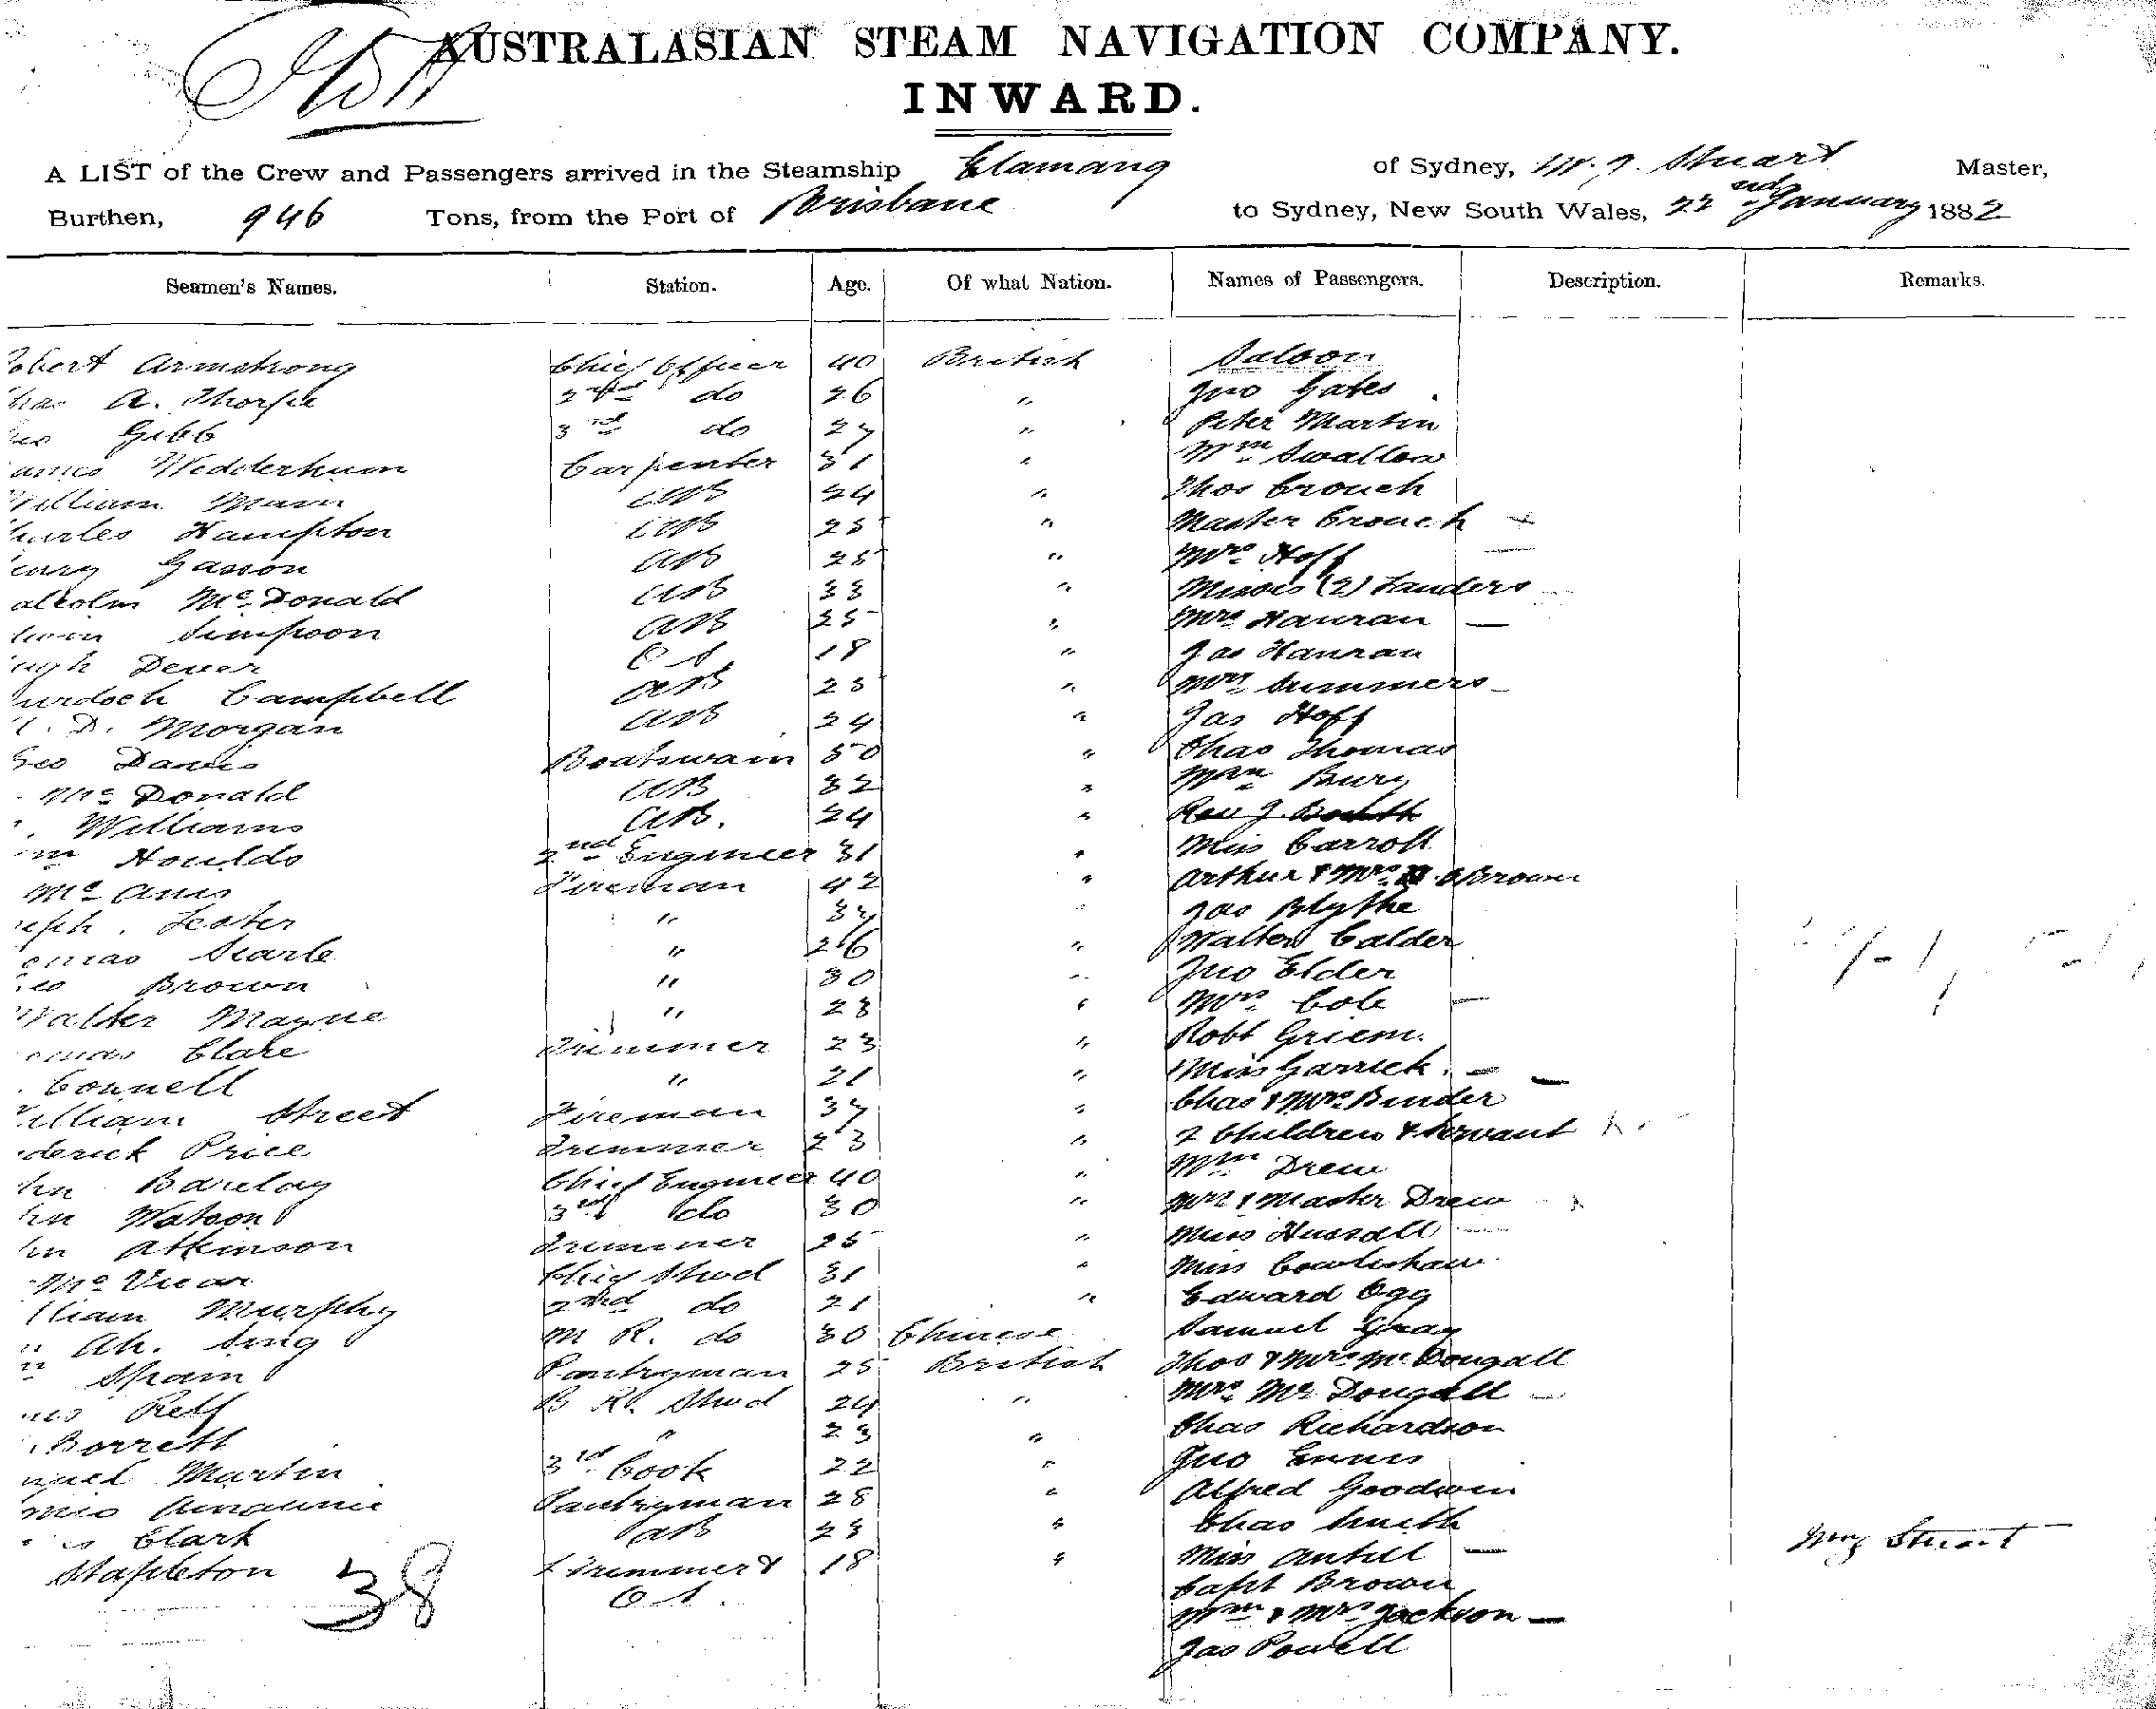 AUSTRALASIAN STEAM NAVIGATION COMPANY.
INWARD.
A LIST of the Crew and Passengers arrived in the Steamship Elamang of Sydney, W. J. Stuart Master,
Burthen, 946 Tons, from the Port of Brisbane to Sydney, New South Wales, 22nd January 1882
Seamen's Names. Station. Age. Of what Nation. Names of Passengers. Description. Remarks.
obert Armstrong Chief Officer 40 British Saloon
has A. Thorpe 2nd do 26 " Jno Gates
eo Gibb 3rd do 27 " Peter Martin
ames Wedderburn Carpenter 31 " Wm Swallow
William Mann AB 24 " Thos Crouch
harles Hampton AB 25 " Master Crouch
enry Gasson AB 25 " Mrs Hoff —
alcolm McDonald AB 33 " Misses (2) Landers
Simpson AB 25 " Mrs Hanran —
ugh Dever OS 18 " Jas Hanran
urdoch Campbell AB 23 " Mrs Summers
D. Morgan AB 24 " Jas Hoff
Geo Davis Boatswain 50 " Chas Thomas
McDonald AB 32 " Wm Bury
Williams AB. 24 " Rev J.
m Houlds 2nd Engineer 31 " Miss Carroll
Fireman 42 " Arthur & Mrs Brown
seph Lester " 37 Jas Blythe
omas Searle " 26 " Walter Calder
eo Brown " 30 " Jno Elder
Walter Mayne " 28 " Mrs Cole —
omas Clare Trimmer 23 " Robt Griem.
Connell " 21 " Miss Garrick —
William Street Fireman 37 " Chas & Mrs Binder
derick Price Trimmer 23 " 2 Children & Servant
hn Barclay Chief Engineer 40 " Wm Drew
hn Watson 3rd do 30 " Mrs & Master Drew
hn Atkinson Trimmer 25 " Miss Hassall
McVicar Chief Stwd 31 " Miss Cowlishaw
lliam Murphy 2nd do 21 " Edward Ogg
Ah. Sing M R. do 30 Chinese Samuel Gray
Spain Pantryman 25 British Thos & Mrs McDougall
Relf B Rd. Stwd 24 " Mrs McDougall —
Borrett " 23 " Chas Richardson
Martin 3rd Cook 22 " Jno Ennis
Pantryman 28 " Alfred Goodwin
Clark AB 23 " Chas Smith
Stapleton Trimmer & 18 " Miss Antill —
OS Capt Brown
38 Wm & Mrs Jackson —
Jas Powell
Stuart